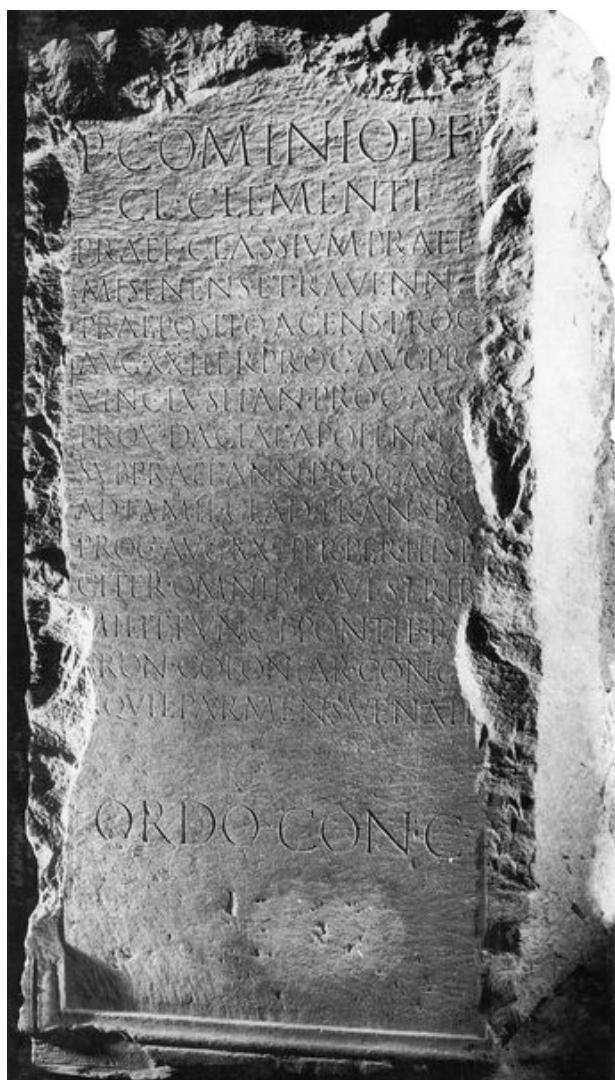 P·COMINIO·P·F
CL·CLEMENTI
PRAEF·CLASSIVM·PRAET
MISENENS·ET·RAVENN
PRAEPOSITO·A·CENS·PROC
AVG·XX·HER·PROC·AVG·PRO
VINC·LVSITAN·PROC·AVG
PROV·DACIAE·APOLENSI
SVBPRAEF·ANN·PROC·AVG
AD·FAMIL·GLAD·TRANSPA
PROC·AVG·XX·HER·PER·HISP
CITER·OMNIB·EQVESTRIB
MILIT·FVNCT·PONTIF·PA
TRON·COLONIAR·CONC
QVIL·PARMENS·VENAF
ORDO·CON·C